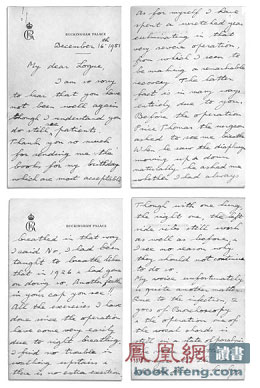 BUCKINGHAM PALACE
December 16th 1951
My dear Logue,
I am so sorry
to hear that you have
not been well again
though I understand you
do see still, patients.
Thank you so much
for sending me the
books for my birthday
which are most acceptable
As for myself I have
spent a wretched year
culminating in that
very severe operation
from which I seem to
be making a remarkable
recovery. The latter
fact is in many ways
entirely due to you.
Before the operation
Price Thomas the surgeon
asked to see me breathe.
When he saw the diaphragm
moving up & down
naturally he asked me
whether I had always
BUCKINGHAM PALACE
breathed in that way.
I said No, I had been
taught to breathe like
that in 1926 & had gone
on doing so. Another feather
in your cap you see!!
All the exercises I have
done since the operation
have come very easily
due to right breathing.
I find no trouble in
walking upstairs as
there is no extra exertion
Though with one lung,
the right one, the left
side ribs still work
as well as before, &
I see no reason why
they should not continue
to do so.
My voice unfortunately
is quite another matter.
Due to the infection, &
of Bronchoscopy
& the operation, one of
the vocal chords is
鳳凰網 讀書
book.ifeng.com